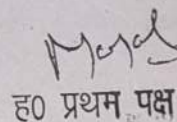 ह0 प्रथम पक्ष